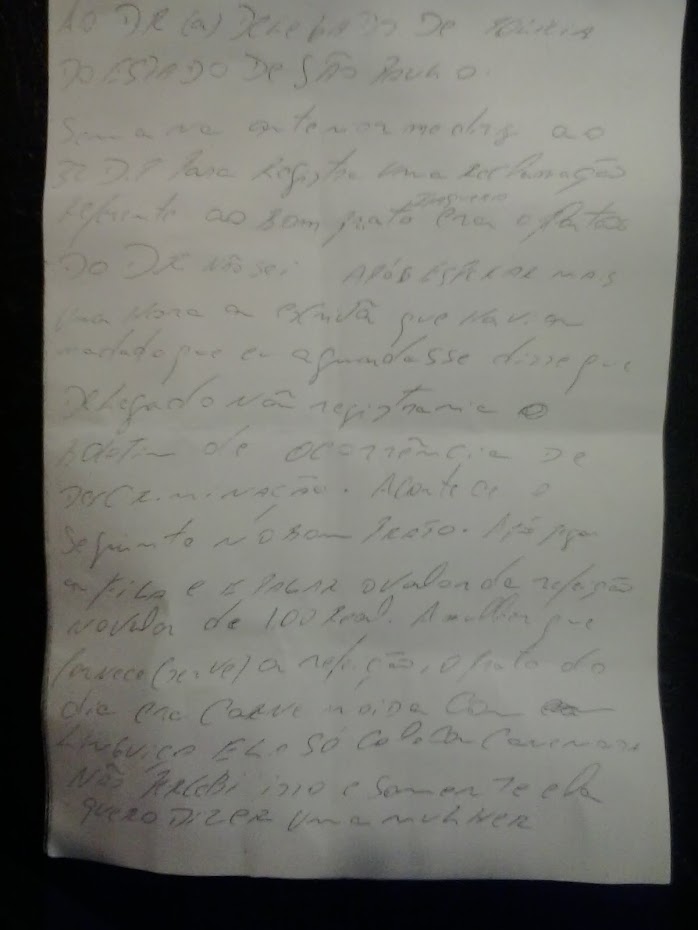 AO DR (a) DELEGADO DE POLICIA
DO ESTADO DE SÃO PAULO.
Semana anterior me dirigi ao
3º D.P Para Registra uma Reclamação
Referente ao Bom prato era o Plantão
DO DR Não Sei APÓS ESPERAR MAS
uma Hora a escrivã que Havia
mandado que eu aguardasse disse que
Delegado Não registraria o
Boletim de OCORRÊNCIA DE
DESCRIMINAÇÃO. Acontece o
Seguinte NO Bom PRATO. Após pegar
a FILA e PAGAR O Valor da refeição
No Valor de 1,00 Real. A mulher que
fornece (serve) a refeição, O prato do
dia era CARNE moida Com
Linguiça ELA SÓ Coloca Carne
Não PERCEBI isso e Somente ela
QUERO DIZER uma MULHER